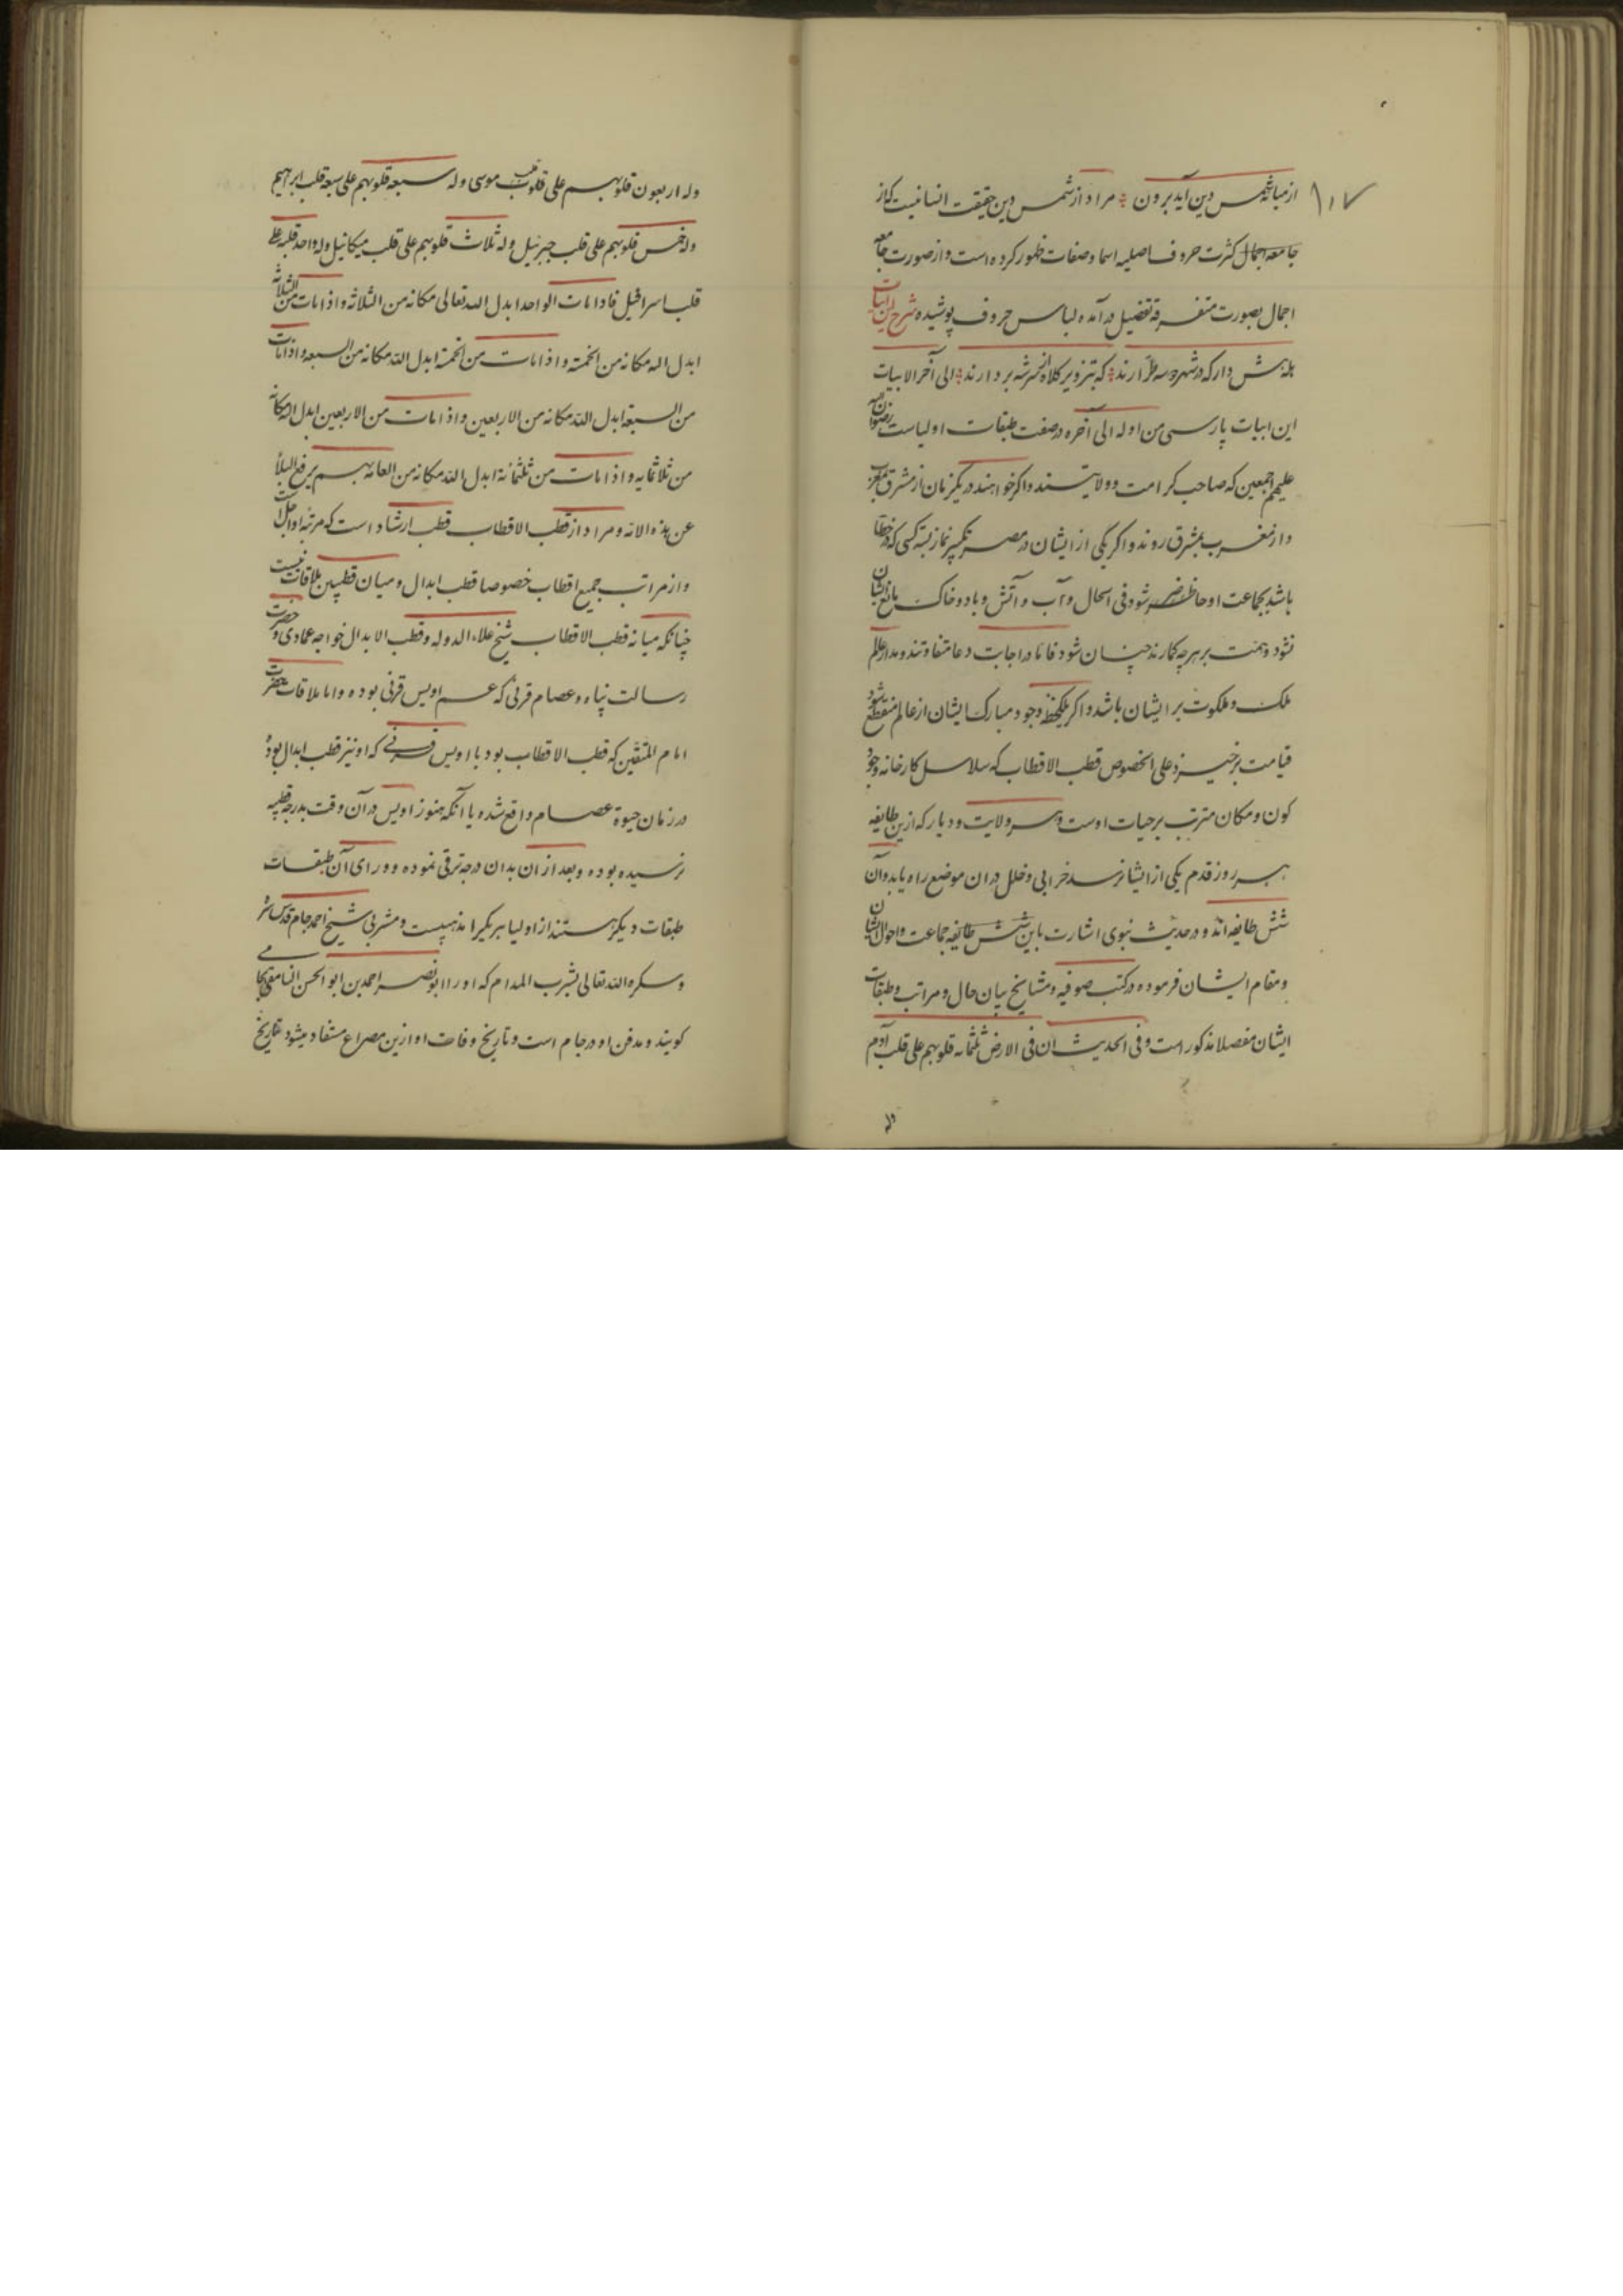 ۱۰۷
از میانه شمس دین آید برون مراد از شمس دین حقیقت انسانیست که از
جامعه اجمال کثرت حروف اصلیه اسما و صفات ظهور کرده است و از صورت جامعه
اجمال بصورت متفرقه تفصیل درآمده لباس حروف پوشیده شرح این ابیات
بله هش دار که در شهر دو سه طرارند که بتزویر کلاه از سر شه بردارند الی آخر الابیات
این ابیات پارسی من اوله الی آخره در صفت طبقات اولیاست رضوان الله
علیهم اجمعین که صاحب کرامت و ولایتند و اگر خواهند در یکزمان از مشرق بمغرب
و از مغرب بمشرق روند و اگر یکی از ایشان در مصر تکبیر نماز بسته کسی که در خطا
باشد بجماعت او حاضر شود فی الحال و آب و آتش و باد و خاک مانع ایشان
نشود و همت بر هرچه کمارند چنان شود فاما در اجابت دعا متفاوتند و مدار عالم
ملک و ملکوت بر ایشان باشد و اگر یکلحظه وجود مبارک ایشان از عالم منقطع شود
قیامت برخیزد علی الخصوص قطب الاقطاب که سلاسل کارخانه وجود
کون و مکان مترتب بر حیات اوست و هر ولایت و دیار که ازین طایفه
هر روز قدم یکی از ایشان نرسد خرابی و خلل در ان موضع راه یابد و آن
شش طایفه اند و در حدیث نبوی اشارت باین شش طایفه جماعت و احوال ایشان
و مقام ایشان فرموده در کتب صوفیه و مشایخ بیان حال و مراتب و طبقات
ایشان مفصلا مذکور است و فی الحدیث ان فی الارض ثلثمائه قلوبهم علی قلب آدم
وله
وله اربعون قلوبهم علی قلوب موسی وله سبعه قلوبهم علی سبعه قلب ابراهیم
وله خمس قلوبهم علی قلب جبرئیل وله ثلاث قلوبهم علی قلب میکائیل وله واحد قلبه علی
قلب اسرافیل فاذا مات الواحد ابدل الله تعالی مکانه من الثلاثه و اذا مات من الثلاثه
ابدل الله مکانه من الخمسة و اذا مات من الخمسة ابدل الله مکانه من السبعه و اذا مات
من السبعة ابدل الله مکانه من الاربعین و اذا مات من الاربعین ابدل الله مکانه
من ثلاثمایه و اذا مات من ثلثمائة ابدل الله مکانه من العامه بهم یرفع البلاء
عن هذه الامه و مراد از قطب الاقطاب قطب ارشاد است که مرتبه او اجل است
و از مراتب جمیع اقطاب خصوصا قطب ابدال و میان قطبین ملاقات نیست
چنانکه میانه قطب الاقطاب شیخ علاء الدوله و قطب الابدال خواجه عمادی و حضرت
رسالت پناه و عصام قرنی که عم اویس قرنی بوده و اما ملاقات حضرت
امام المتقین که قطب الاقطاب بود با اویس قرنی که او نیز قطب ابدال بود
در زمان حیوة عصام واقع شده یا آنکه هنوز اویس در آن وقت بدرجه قطبیه
نرسیده بوده و بعد از ان بدان درجه ترقی نموده و ورای آن طبقات
طبقات دیگر هستند از اولیا هر یکی را مذهبیست و مشربی شیخ احمد جام قدس سره
و سکره الله تعالی بشرب المدام که او را ابو نصر احمد بن ابو الحسن النامقی
کویند و مدفن او در جام است و تاریخ وفات او ازین مصراع مستفاد میشود تاریخ